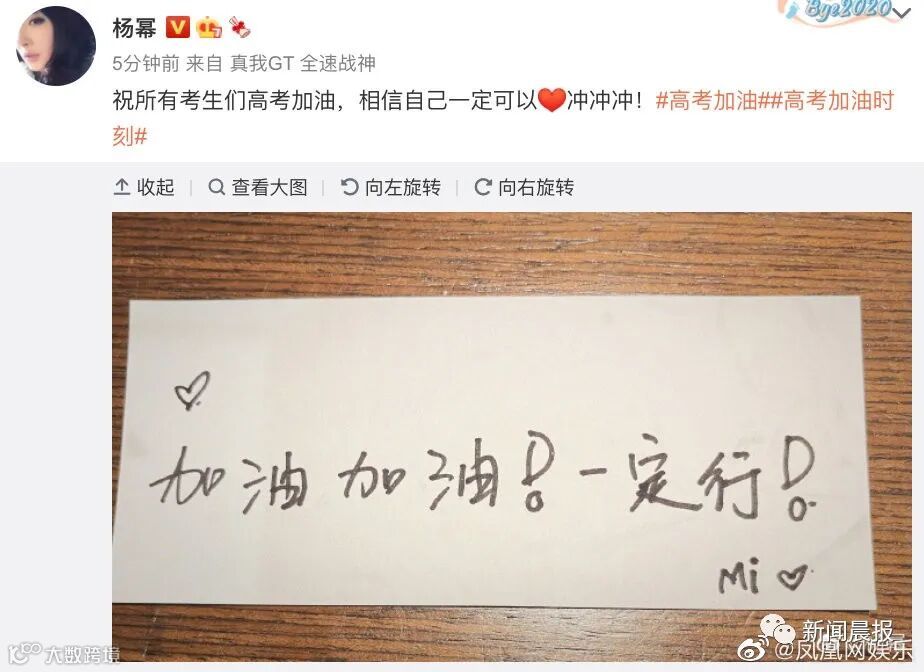 Bye2020
杨幂
5分钟前 来自 真我GT 全速战神
祝所有考生们高考加油，相信自己一定可以❤️冲冲冲！#高考加油##高考加油时
刻#
收起 查看大图 向左旋转 向右旋转
加油加油！一定行！
Mi
新闻晨报
@凤凰网娱乐
大数跨境